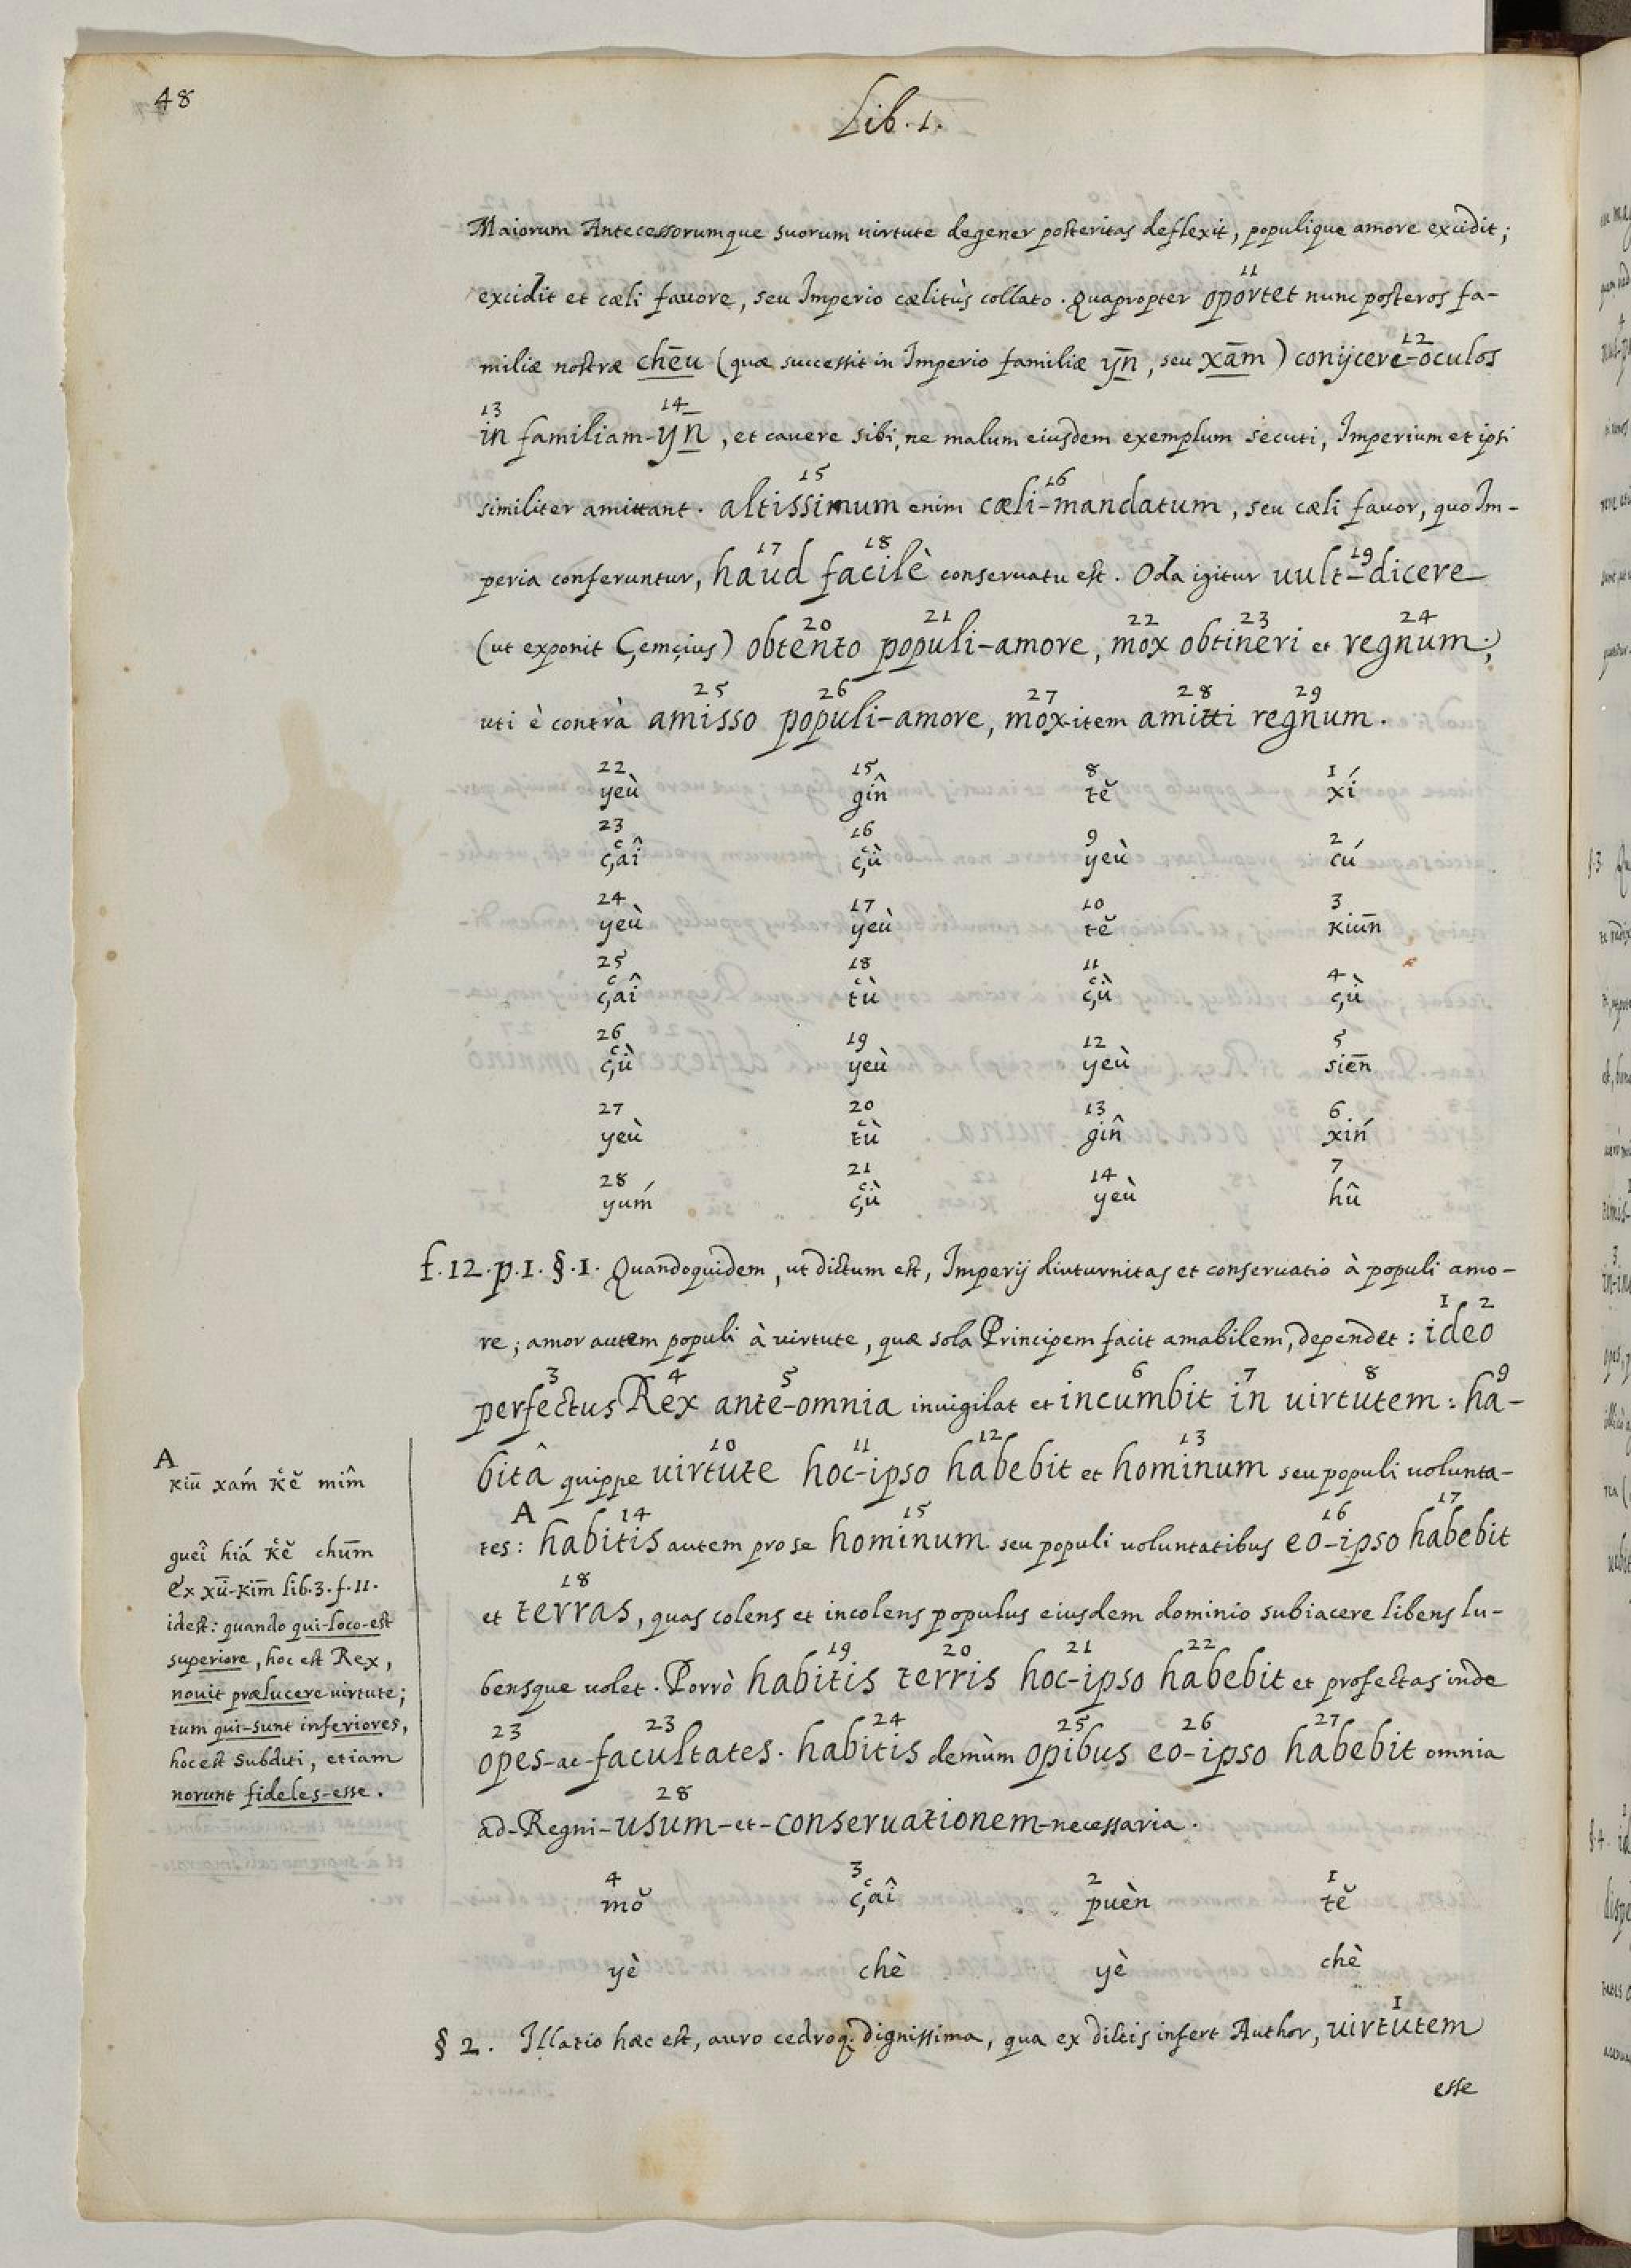 48
Lib. 1.
Maiorum Antecessorumque suorum uirtute degener posteritas deflexit, populique amore excidit;
11
excidit et cæli fauore, seu Imperio cælitùs collato. Quapropter oportet nunc posteros fa-
12
miliæ nostræ chēu (quæ successit in Imperio familiæ yn̄, seu xām) conijcere-oculos
13 14
in familiam-yn̄, et cauere sibi, ne malum eiusdem exemplum secuti, Imperium et ipsi
15 16
similiter amittant. altissimum enim cæli-mandatum, seu cæli fauor, quo Im-
17 18 19
peria conferuntur, haud facilè conseruatu est. Oda igitur uult-dicere
20 21 22 23 24
(ut exponit Çemçius) obtento populi-amore, mox obtineri et regnum;
25 26 27 28 29
uti è contrà amisso populi-amore, mox-item amitti regnum.
22 15 8 1
yeù gin̂ tĕ xí
23 16 9 2
çʿaî çʿù yeù cú
24 17 10 3
yeù yeù tĕ kiun̄
25 18 11 4
çʿaî tʿù çʿù çʿù
26 19 12 5
çʿù yeù yeù sien̄
27 20 13 6
yeù tʿù gin̂ xiń
28 21 14 7
yuḿ çʿù yeù hû
f. 12. p. 1. §. 1. Quandoquidem, ut dictum est, Imperij diuturnitas et conseruatio à populi amo-
1 2
re; amor autem populi à uirtute, quæ sola Principem facit amabilem, dependet: ideo
3 4 5 6 7 8 9
perfectus Rex ante-omnia inuigilat et incumbit in uirtutem: ha-
10 11 12 13
bitâ quippe uirtute hoc-ipso habebit et hominum seu populi uolunta-
A 14 15 16 17
tes: habitis autem pro se hominum seu populi uoluntatibus eo-ipso habebit
18
et terras, quas colens et incolens populus eiusdem dominio subiacere libens lu-
19 20 21 22
bensque uolet. Porrò habitis terris hoc-ipso habebit et profectas inde
23 23 24 25 26 27
opes-ac-facultates. habitis demùm opibus eo-ipso habebit omnia
28
ad-Regni-usum-et-conseruationem-necessaria.
A
kiū xaḿ kʿĕ mim̂
gueî hiá kʿĕ chum̄
ex xū-kim̄ lib. 3. f. 11.
idest: quando qui-loco-est
superiore, hoc est Rex,
nouit prælucere uirtute;
tum qui-sunt inferiores,
hoc est Subditi, etiam
norunt fideles-esse.
4 3 2 1
mŏ çʿaî puèn tĕ
yè chè yè chè
1
§ 2. Illatio hæc est, auro cedroq; dignissima, qua ex dictis infert Author, uirtutem
esse